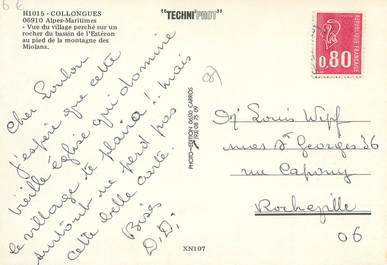 H1015 - COLLONGUES
06910 Alpes-Maritimes
- Vue du village perché sur un
rocher du bassin de l'Estéron
au pied de la montagne des
Miolans.
"TECHNI'PHOT"
0,80
Cher Loulou
J'espère que cette
vieille église qui domine
le village te plaira !. mais
surtout ne perd pas
cette belle carte.
Bises
D.D.
PHOTO-ÉDITION 06510 CARROS
(93) 08 75 09
Mr Louis
St Georges 36
rue
Rocheville
06
XN107